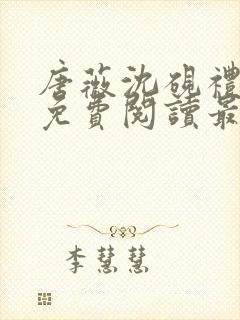 唐薇沈硯禮
免費閱讀最
李慧慧